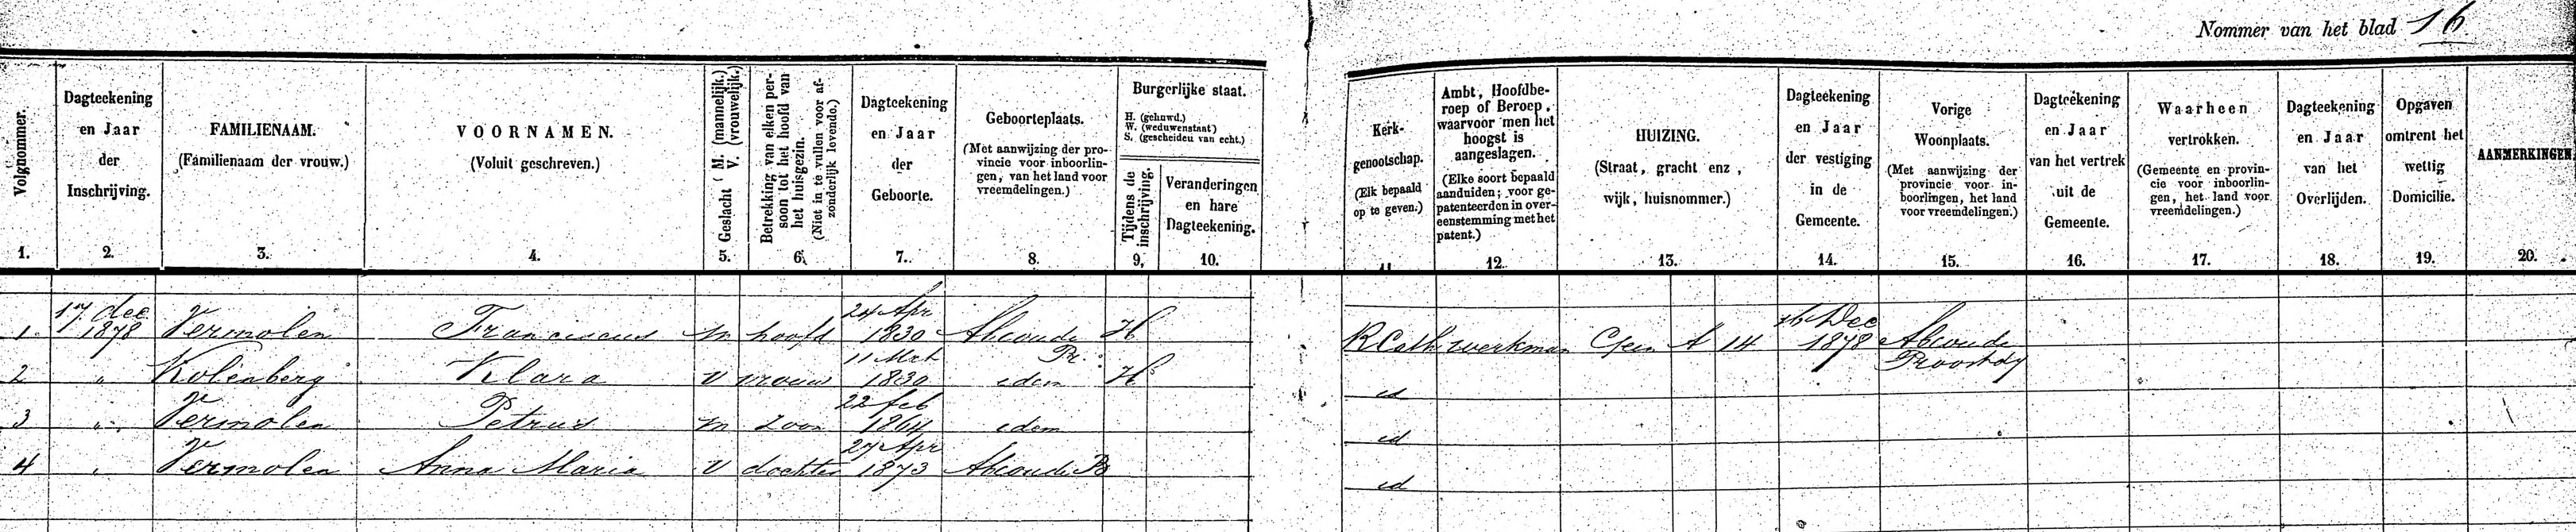 Nommer van het blad 16
Volgnommer.
1.
Dagteekening
en Jaar
der
Inschrijving.
2.
FAMILIENAAM.
(Familienaam der vrouw.)
3.
VOORNAMEN.
(Voluit geschreven.)
4.
Geslacht { M. (mannelijk.)
V. (vrouwelijk.)
5.
Betrekking van elken per-
soon tot het hoofd van
het huisgezin.
(Niet in te vullen voor af-
zonderlijk levende.)
6.
Dagteekening
en Jaar
der
Geboorte.
7.
Geboorteplaats.
(Met aanwijzing der pro-
vincie voor inboorlin-
gen, van het land voor
vreemdelingen.)
8.
Burgerlijke staat.
H. (gehuwd.)
W. (weduwenstaat)
S. (gescheiden van echt.)
Tijdens de
inschrijving.
9.
Veranderingen
en hare
Dagteekening.
10.
Kerk-
genootschap.
(Elk bepaald
op te geven.)
11.
Ambt, Hoofdbe-
roep of Beroep,
waarvoor men het
hoogst is
aangeslagen.
(Elke soort bepaald
aanduiden; voor ge-
patenteerden in over-
eenstemming met het
patent.)
12.
HUIZING.
(Straat, gracht enz,
wijk, huisnommer.)
13.
Dagteekening
en Jaar
der vestiging
in de
Gemeente.
14.
Vorige
Woonplaats.
(Met aanwijzing der
provincie voor in-
boorlingen, het land
voor vreemdelingen.)
15.
Dagteekening
en Jaar
van het vertrek
uit de
Gemeente.
16.
Waarheen
vertrokken.
(Gemeente en provin-
cie voor inboorlin-
gen, het land voor
vreemdelingen.)
17.
Dagteekening
en Jaar
van het
Overlijden.
18.
Opgaven
omtrent het
wettig
Domicilie.
19.
AANMERKINGEN
20.
17 dec 24 Apr 16 Dec
1 1878 Vermolen Franciscus m hoofd 1830 Abcoude H R Cath werkman A 14 1878 Abcoude
11 Mrt Pr. Proostdy
2 " Kolenberg Klara v vrouw 1830 edem H id
22 feb
3 " Vermolen Petrus m zoon 1864 edem id
27 Apr
4 " Vermolen Anna Maria v dochter 1873 Abcoude B id